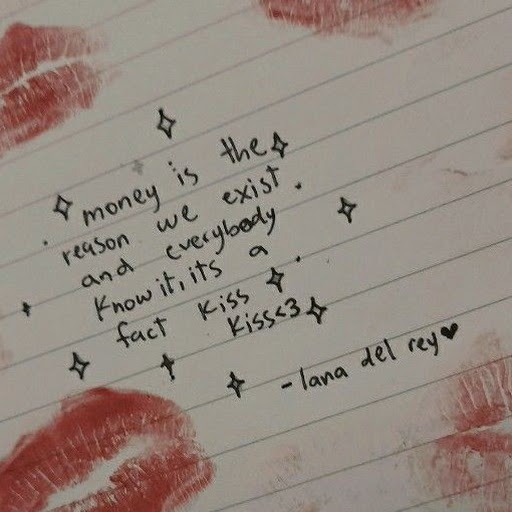 money is the
reason we exist.
and everybody
know it, its a
fact kiss
kiss<3
-lana del rey♥